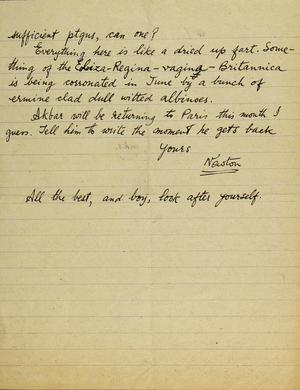 sufficient ptgus, can one?
Everything here is like a dried up fart. Some-
thing of the Eliza-Regina-vagina-Britannica
is being corronated in June by a bunch of
ermine clad dull witted albinoes.
Akbar will be returning to Paris this month I
guess. Tell him to write the moment he gets back
Yours
Newton
All the best, and boy, look after yourself.